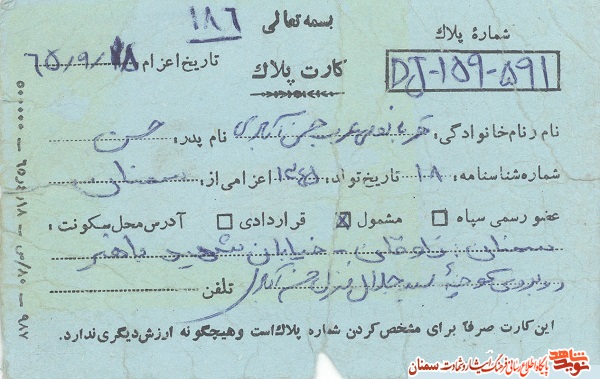 بسمه تعالی
۱۸۶
شمارهٔ پلاک
DJ-۱۵۹-۵۹۱
کارت پلاک
تاریخ اعزام ۶۵/۹/۱۸
نام و نام خانوادگی: قربانعلی عرب نام پدر: حسن
شماره شناسنامه: ۱۸ تاریخ تولد: ۱۳۴۵ اعزامی از: سمنان
عضو رسمی سپاه □ مشمول ☒ قراردادی □ آدرس محل سکونت:
سمنان - خیابان شهید باهنر
روبروی کوچهٔ سید جلال تلفن
این کارت صرفاً برای مشخص کردن شماره پلاک است و هیچگونه ارزش دیگری ندارد.
۵۰۰۰۰۰ — ۶۵٫۴٫۱۸ — س/۸۰ — ۹۸۷
نوید شاهد
پایگاه اطلاع رسانی فرهنگ ایثار و شهادت سمنان